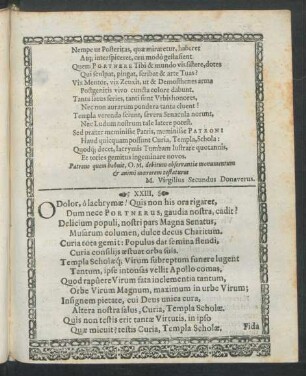 Nempe ut Posteritas, quæ miraretur, haberet
Atq; interspiteret, ceu modò gestasient
Quem PORTNERE Tibi & mundo vix sistere, dotes
Qui sculpat, pingat, scribat & arte Tuas?
Vis Mentor, vis Zeuxis, ut & Demosthenes anna
Postgenitis vivo cuncta colore dabunt.
Tanta intus series, tanti sent Vrbis honores,
Nec non ærarium pondera tanta gisunt?
Templa verenda sciunt, serena Senacula norunt,
Nec Ludum nostrum tale latere potest.
Sed præter meminisse Patris, meminisse PATRONI
Haud quicquam possint Curia, Templa, Schola:
Quodq; decet, lacrymis Tumbam lustrare quotannis,
Et toties gemitus ingeminare novos.
Patrono quem habuit, O. M. debitum observantiæ monumentum
& animi mœrorem testaturus
M. Virgilius Secundus Donaverus.
XXIII.
O Dolor, ô lachrymæ! Quis non his ora rigaret,
Dum nece PORTNERUS, gaudia nostra, cadit?
Delicium populi, nostri pars Magna Senatus,
Musarum columen, dulce decus Charitum.
Curia tota gemit: Populus dat femina flendi,
Curia consilijs æstuat orba suis.
Templa Scholæq́; Virum subreptum funere lugent
Tantum, ipse intonsa vellit Apollo comas,
Quod rapuêre Virum fata inclementia tantum,
Orbe Virum Magnum, maximum in urbe Virum;
Insignem pietate, cui Deus unica cura,
Altera nostra salus, Curia, Templa Scholæ.
Quis non testis erit tantæ Virtutis, in ipso
Quæ micuit? testis Curia, Templa Scholæ,
Fida